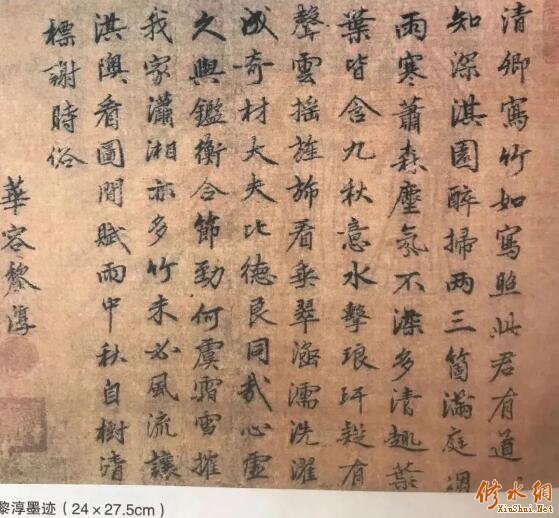 清卿寫竹如寫照此君有道
知深淇園醉掃兩三箇滿庭
雨寒蕭森塵氛不染多清趣葉
葉皆含九秋意水擊琅玕疑有
聲雲搖旌旆看垂翠濡洗濯
成奇材大夫比德良同哉心靈
久與鑑衡合節勁何虞霜雪摧
我家瀟湘亦多竹未必風流讓
淇澳看圖閒賦雨中秋自樹清
標謝時俗
華容黎淳
黎淳墨迹（24×27.5cm）
修水網
XiuShui.Net